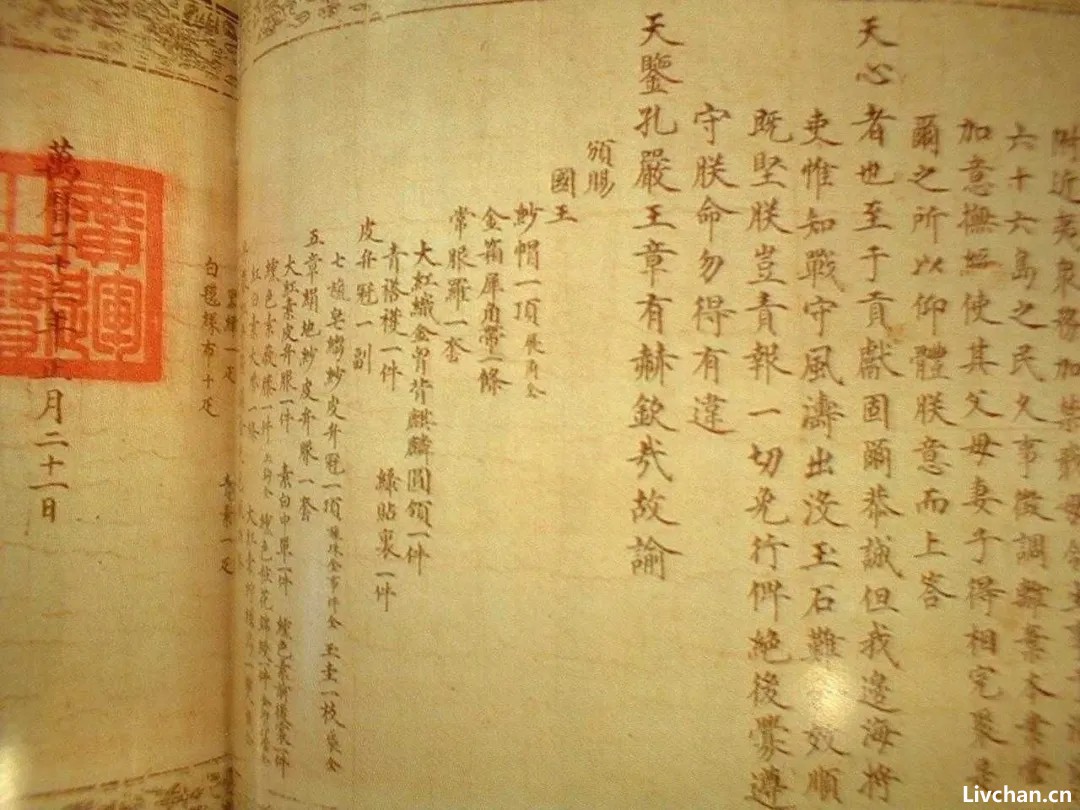 附近夷衆務加禁戢毋令生事于
六十六島之民久事徵調離棄本業當
加意撫綏使其父母妻子得相完聚是
爾之所以仰體朕意而上答
天心者也至于貢獻固爾恭誠但我邊海將
吏惟知戰守風濤出沒玉石難效順
既堅朕豈責報一切免行俾絕後釁遵
守朕命勿得有違
天鑒孔嚴王章有赫欽哉故諭
頒賜
國王
紗帽一頂展角全
金箱犀角帶一條
常服羅一套
大紅織金胷背麒麟圓領一件
青褡𧞤一件 綠貼裏一件
皮弁冠一副
七旒皂縐紗皮弁冠一頂旒珠金事件全 玉圭一枝袋全
五章絹地紗皮弁服一套
大紅素皮弁服一件 素白中單一件 纁色素前後裳一件
纁色素蔽膝一件玉鉤全 纁色粧花錦綬一件
紅白素大帶一條 大紅素紵絲舄一雙
一疋 青素一疋
白氁絲布十疋
萬曆二十三年正月二十一日
Livchan.cn